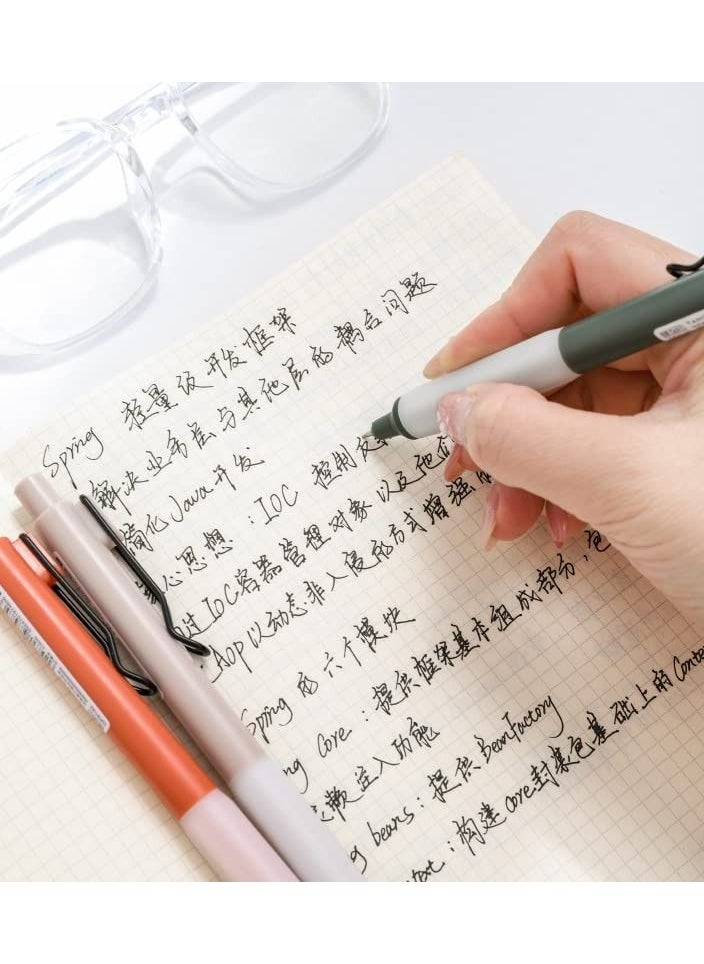 Spring 轻量级开发框架
解决业务层与其他层的耦合问题
简化Java开发
心思想：IOC 控制反
过IOC容器管理对象以及他
AOP以动态非入侵的方式增强
Spring的六个模块
ng core：提供框架基本组成部分，包
依赖注入功能
g beans：提供BeanFactory
text：构建core封装包基础上的Conte